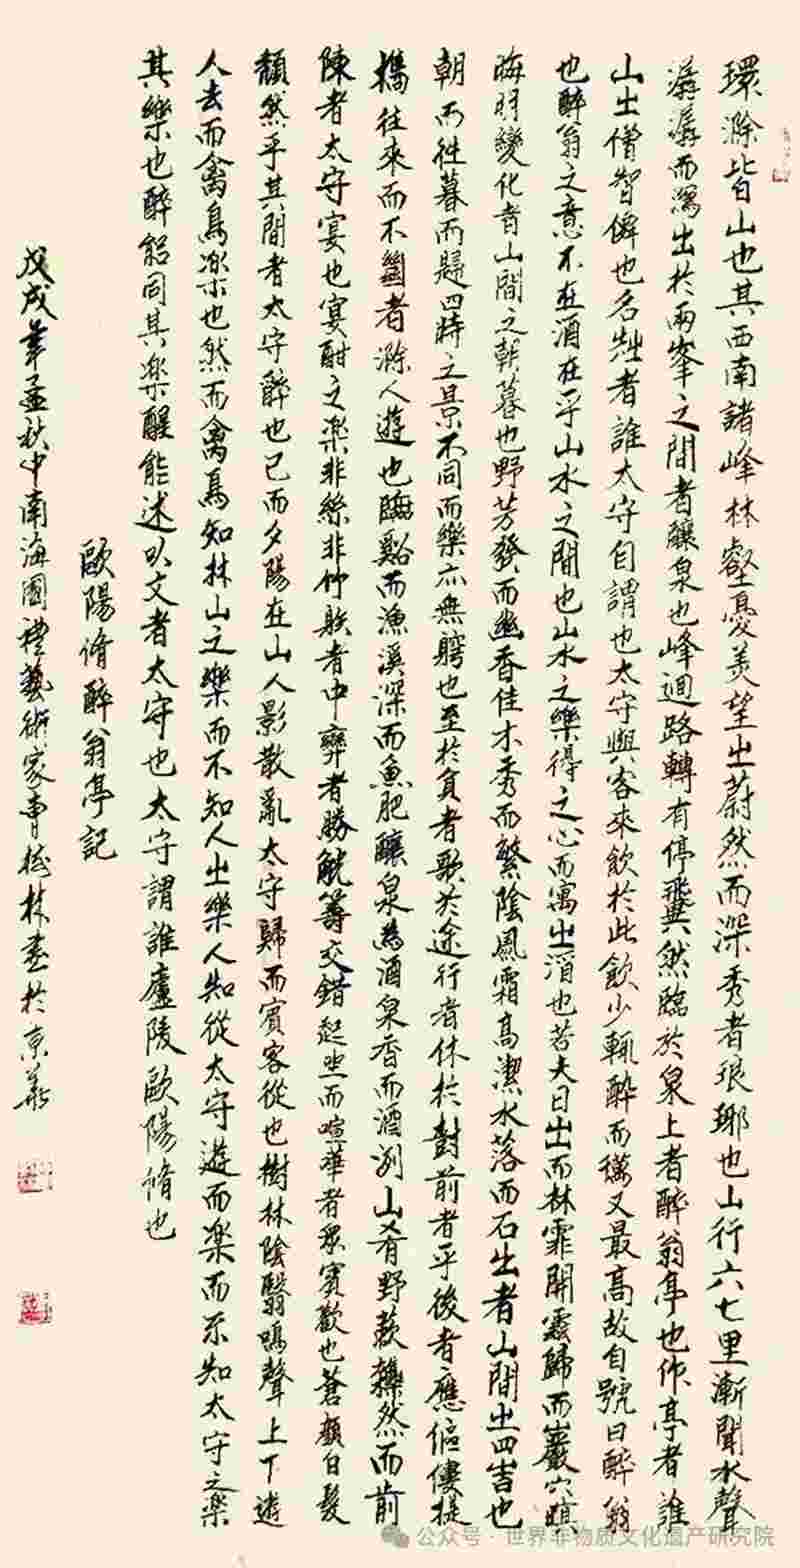 環滁皆山也其西南諸峰林壑憂美望之蔚然而深秀者琅琊也山行六七里漸聞水聲
潺潺而瀉出於兩峯之間者釀泉也峰迴路轉有停翼然臨於泉上者醉翁亭也作亭者誰
山之僧智僊也名之者誰太守自謂也太守與客來飲於此飲少輒醉而又最高故自號曰醉翁
也醉翁之意不在酒在乎山水之間也山水之樂得之心而寓之酒也若夫日出而林霏開雲歸而巖穴暝
晦明變化者山間之朝暮也野芳發而幽香佳木秀而繁陰風霜高潔水落而石出者山間之四時也
朝而往暮而歸四時之景不同而樂亦無窮也至於負者歌於途行者休於樹前者乎後者應傴僂提
攜往來而不絕者滁人遊也臨谿而漁溪深而魚肥釀泉為酒泉香而酒洌山肴野蔌雜然而前
陳者太守宴也宴酣之樂非絲非竹射者中弈者勝觥籌交錯起坐而喧華者眾賓歡也蒼顏白髮
頹然乎其間者太守醉也已而夕陽在山人影散亂太守歸而賓客從也樹林陰翳鳴聲上下遊
人去而禽鳥樂也然而禽鳥知林山之樂而不知人之樂人知從太守遊而樂而不知太守之樂
其樂也醉能同其樂醒能述以文者太守也太守謂誰廬陵歐陽脩也
歐陽脩醉翁亭記
戊戌年孟秋中南海國禮藝術家曹林書於京華
公众号·世界非物质文化遗产研究院